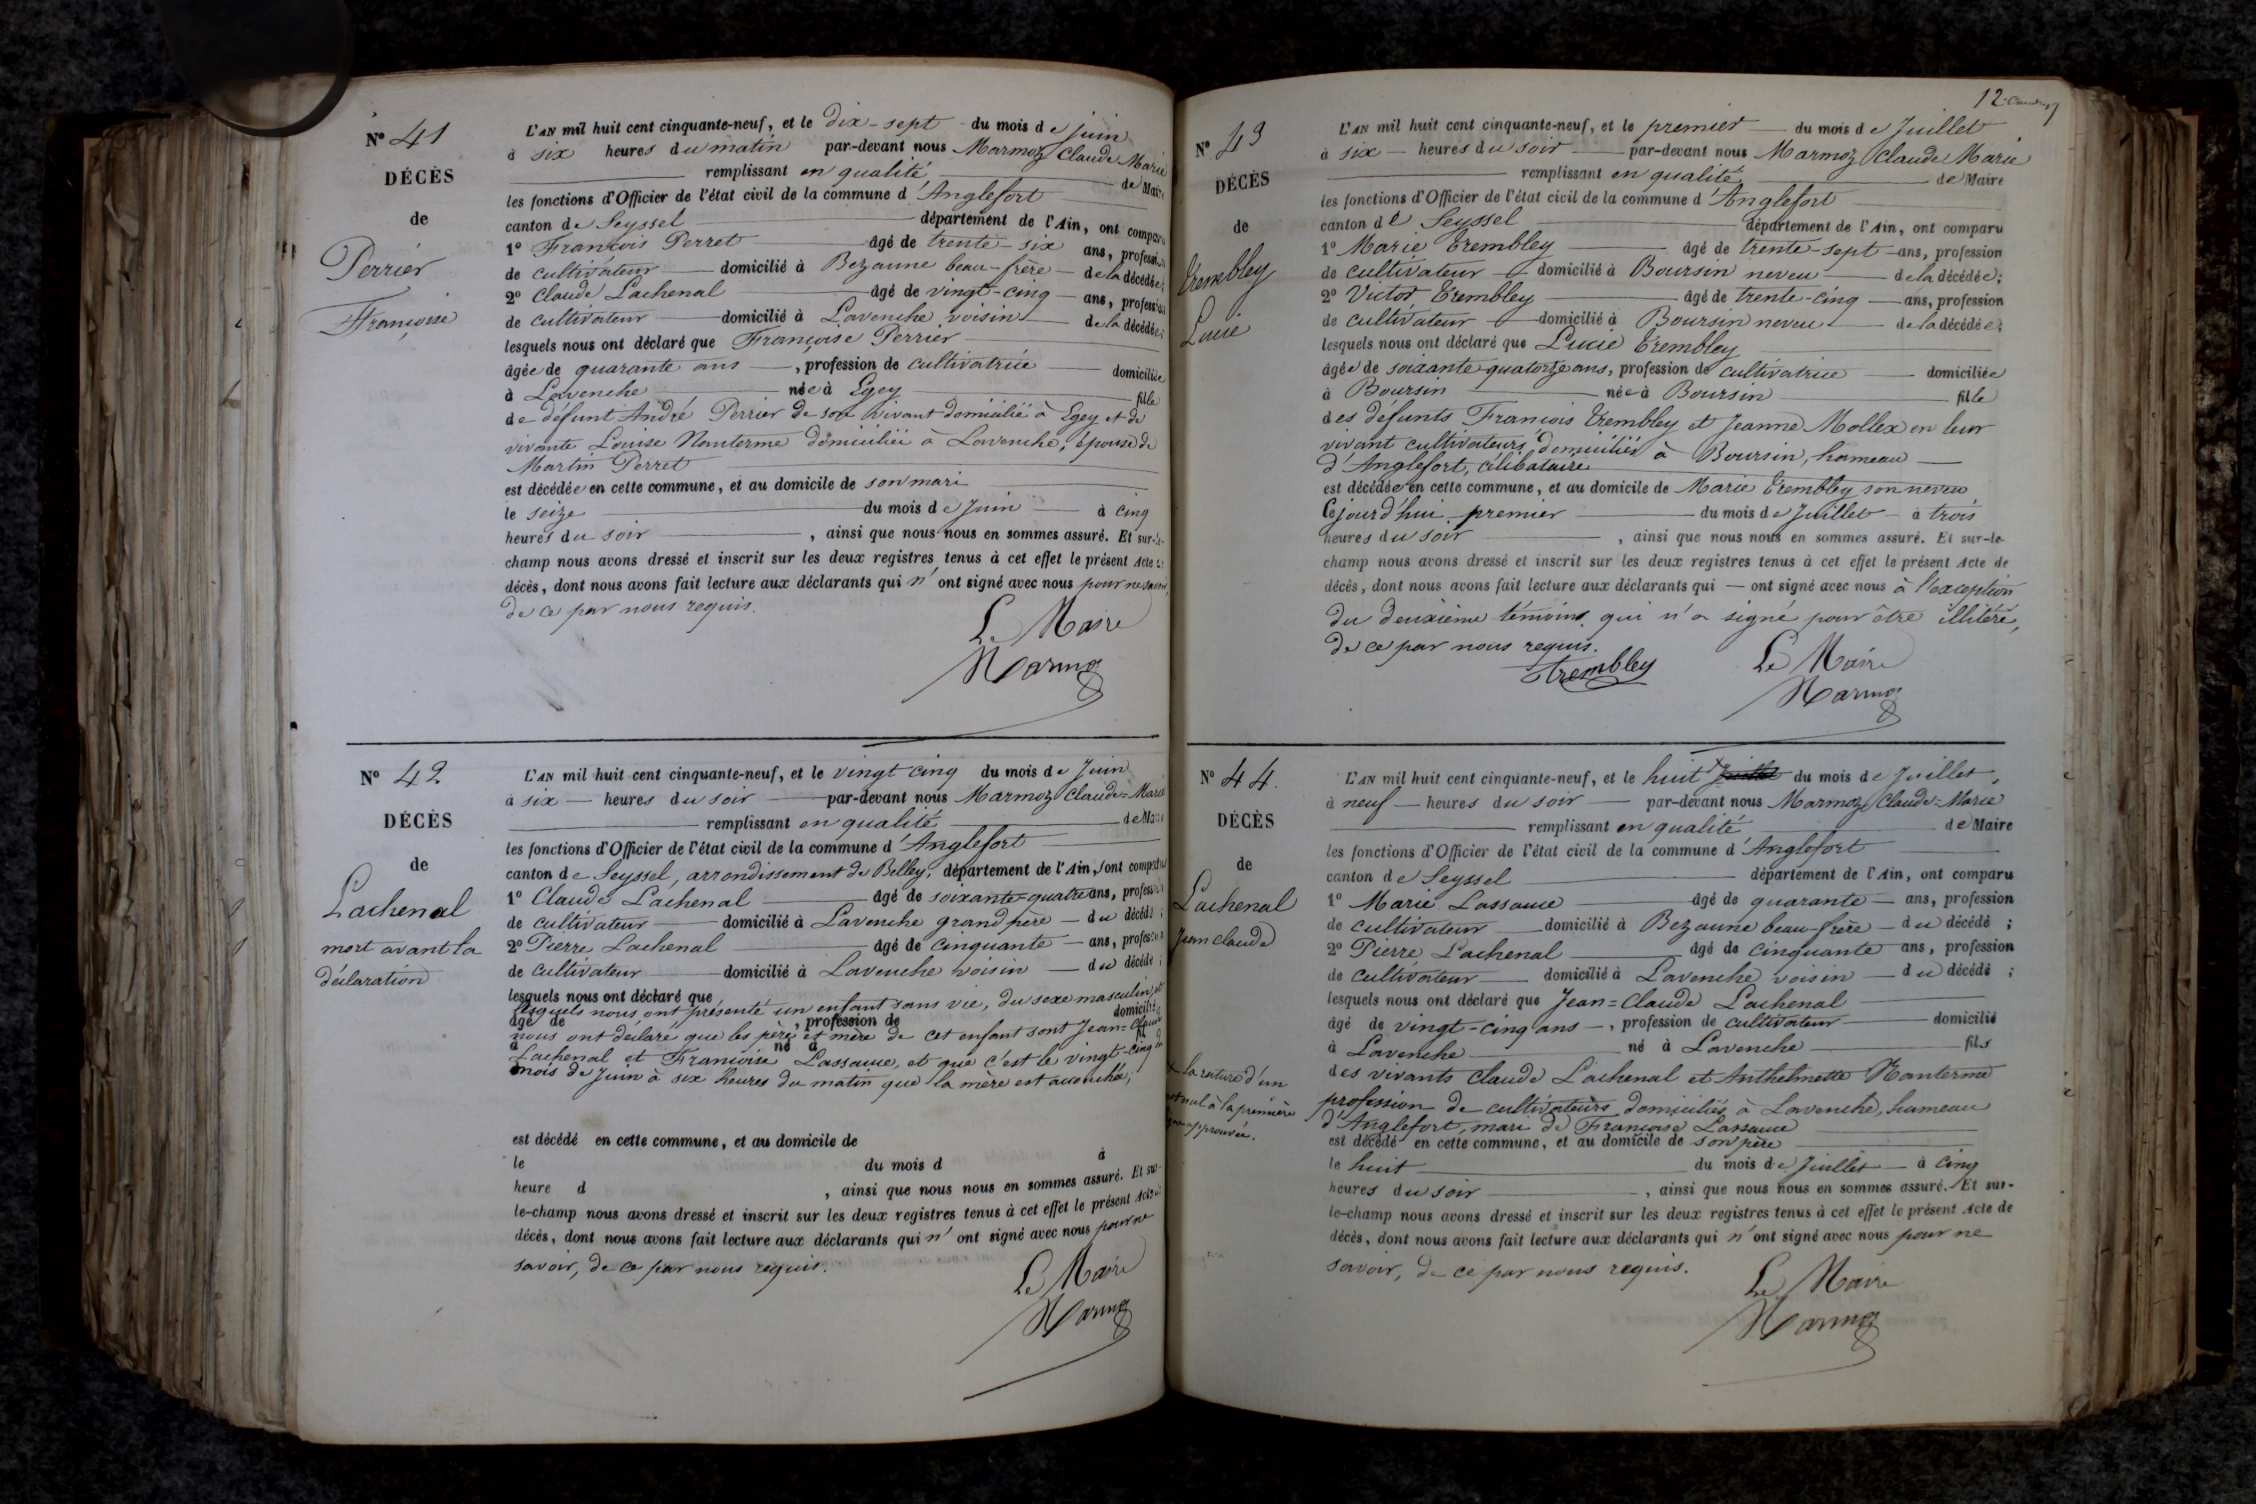 N° 41
DÉCÈS
de
Perrier
Françoise
L'AN mil huit cent cinquante-neuf, et le dix-sept du mois de juin
à six heures du matin par-devant nous Marmoz Claude Marie
remplissant en qualité de Maire
les fonctions d'Officier de l'état civil de la commune d'Anglefort
canton de Seyssel département de l'Ain, ont comparu
1° François Perret âgé de trente-six ans, profession
de cultivateur domicilié à Bezonne beau-frère de la décédée;
2° Claude Lachenal âgé de vingt-cinq ans, profession
de cultivateur domicilié à Lavenche voisin de la décédée;
lesquels nous ont déclaré que Françoise Perrier
âgée de quarante ans, profession de cultivatrice domiciliée
à Lavenche née à Egey fille
de défunt André Perrier de son vivant domicilié à Egey et de
vivante Louise Nanterme domiciliée à Lavenche, épouse de
Martin Perret
est décédée en cette commune, et au domicile de son mari
le seize du mois de Juin à cinq
heures du soir, ainsi que nous nous en sommes assuré. Et sur-le-
champ nous avons dressé et inscrit sur les deux registres tenus à cet effet le présent Acte de
décès, dont nous avons fait lecture aux déclarants qui n'ont signé avec nous pour ne savoir,
de ce par nous requis.
Le Maire
Marmoz
N° 42
DÉCÈS
de
Lachenal
mort avant la
déclaration
L'AN mil huit cent cinquante-neuf, et le vingt cinq du mois de Juin
à six heures du soir par-devant nous Marmoz Claude=Marie
remplissant en qualité de Maire
les fonctions d'Officier de l'état civil de la commune d'Anglefort
canton de Seyssel, arrondissement de Belley, département de l'Ain, sont comparus
1° Claude Lachenal âgé de soixante=quatre ans, profession
de cultivateur domicilié à Lavenche grand père du décédé;
2° Pierre Lachenal âgé de cinquante ans, profession
de cultivateur domicilié à Lavenche voisin du décédé;
lesquels nous ont déclaré que
lesquels nous ont présenté un enfant sans vie, du sexe masculin, et
âgé de , profession de domicilié
nous ont déclaré que les père et mère de cet enfant sont Jean=Claude
à né à fil
Lachenal et Françoise Lassauce, et que c'est le vingt-cinq du
mois de Juin à six heures du matin que la mère est accouchée;
est décédé en cette commune, et au domicile de
le du mois d à
heure d , ainsi que nous nous en sommes assuré. Et sur-
le-champ nous avons dressé et inscrit sur les deux registres tenus à cet effet le présent Acte de
décès, dont nous avons fait lecture aux déclarants qui n'ont signé avec nous pour ne
savoir, de ce par nous requis.
Le Maire
Marmoz
12
N° 43
DÉCÈS
de
Trembley
Lucie
L'AN mil huit cent cinquante-neuf, et le premier du mois de Juillet
à six heures du soir par-devant nous Marmoz Claude Marie
remplissant en qualité de Maire
les fonctions d'Officier de l'état civil de la commune d'Anglefort
canton de Seyssel département de l'Ain, ont comparu
1° Marie Trembley âgé de trente-sept ans, profession
de cultivateur domicilié à Boursin neveu de la décédée;
2° Victor Trembley âgé de trente-cinq ans, profession
de cultivateur domicilié à Boursin neveu de la décédée;
lesquels nous ont déclaré que Lucie Trembley
âgée de soixante-quatorze ans, profession de cultivatrice domiciliée
à Boursin née à Boursin fille
des défunts François Trembley et Jeanne Mollex en leur
vivant cultivateurs domiciliés à Boursin, hameau
d'Anglefort, célibataire
est décédée en cette commune, et au domicile de Marie Trembley son neveu
Cejourd'hui premier du mois de Juillet à trois
heures du soir, ainsi que nous nous en sommes assuré. Et sur-le-
champ nous avons dressé et inscrit sur les deux registres tenus à cet effet le présent Acte de
décès, dont nous avons fait lecture aux déclarants qui ont signé avec nous à l'exception
du deuxième témoins qui n'a signé pour être illitéré,
de ce par nous requis.
Trembley
Le Maire
Marmoz
N° 44.
DÉCÈS
de
Lachenal
Jean Claude
la rature d'un
mot nul à la première
ligne approuvée.
L'AN mil huit cent cinquante-neuf, et le huit Juillet du mois de Juillet,
à neuf heures du soir par-devant nous Marmoz Claude=Marie
remplissant en qualité de Maire
les fonctions d'Officier de l'état civil de la commune d'Anglefort
canton de Seyssel département de l'Ain, ont comparu
1° Marie Lassauce âgé de quarante ans, profession
de cultivateur domicilié à Bezonne beau-frère du décédé;
2° Pierre Lachenal âgé de cinquante ans, profession
de cultivateur domicilié à Lavenche voisin du décédé;
lesquels nous ont déclaré que Jean=Claude Lachenal
âgé de vingt-cinq ans, profession de cultivateur domicilié
à Lavenche né à Lavenche fils
des vivants Claude Lachenal et Anthelmette Nanterme
profession de cultivateurs domiciliés à Lavenche, hameau
d'Anglefort, mari de Françoise Lassauce
est décédé en cette commune, et au domicile de son père
le huit du mois de Juillet à cinq
heures du soir, ainsi que nous nous en sommes assuré. Et sur-
le-champ nous avons dressé et inscrit sur les deux registres tenus à cet effet le présent Acte de
décès, dont nous avons fait lecture aux déclarants qui n'ont signé avec nous pour ne
savoir, de ce par nous requis.
Le Maire
Marmoz